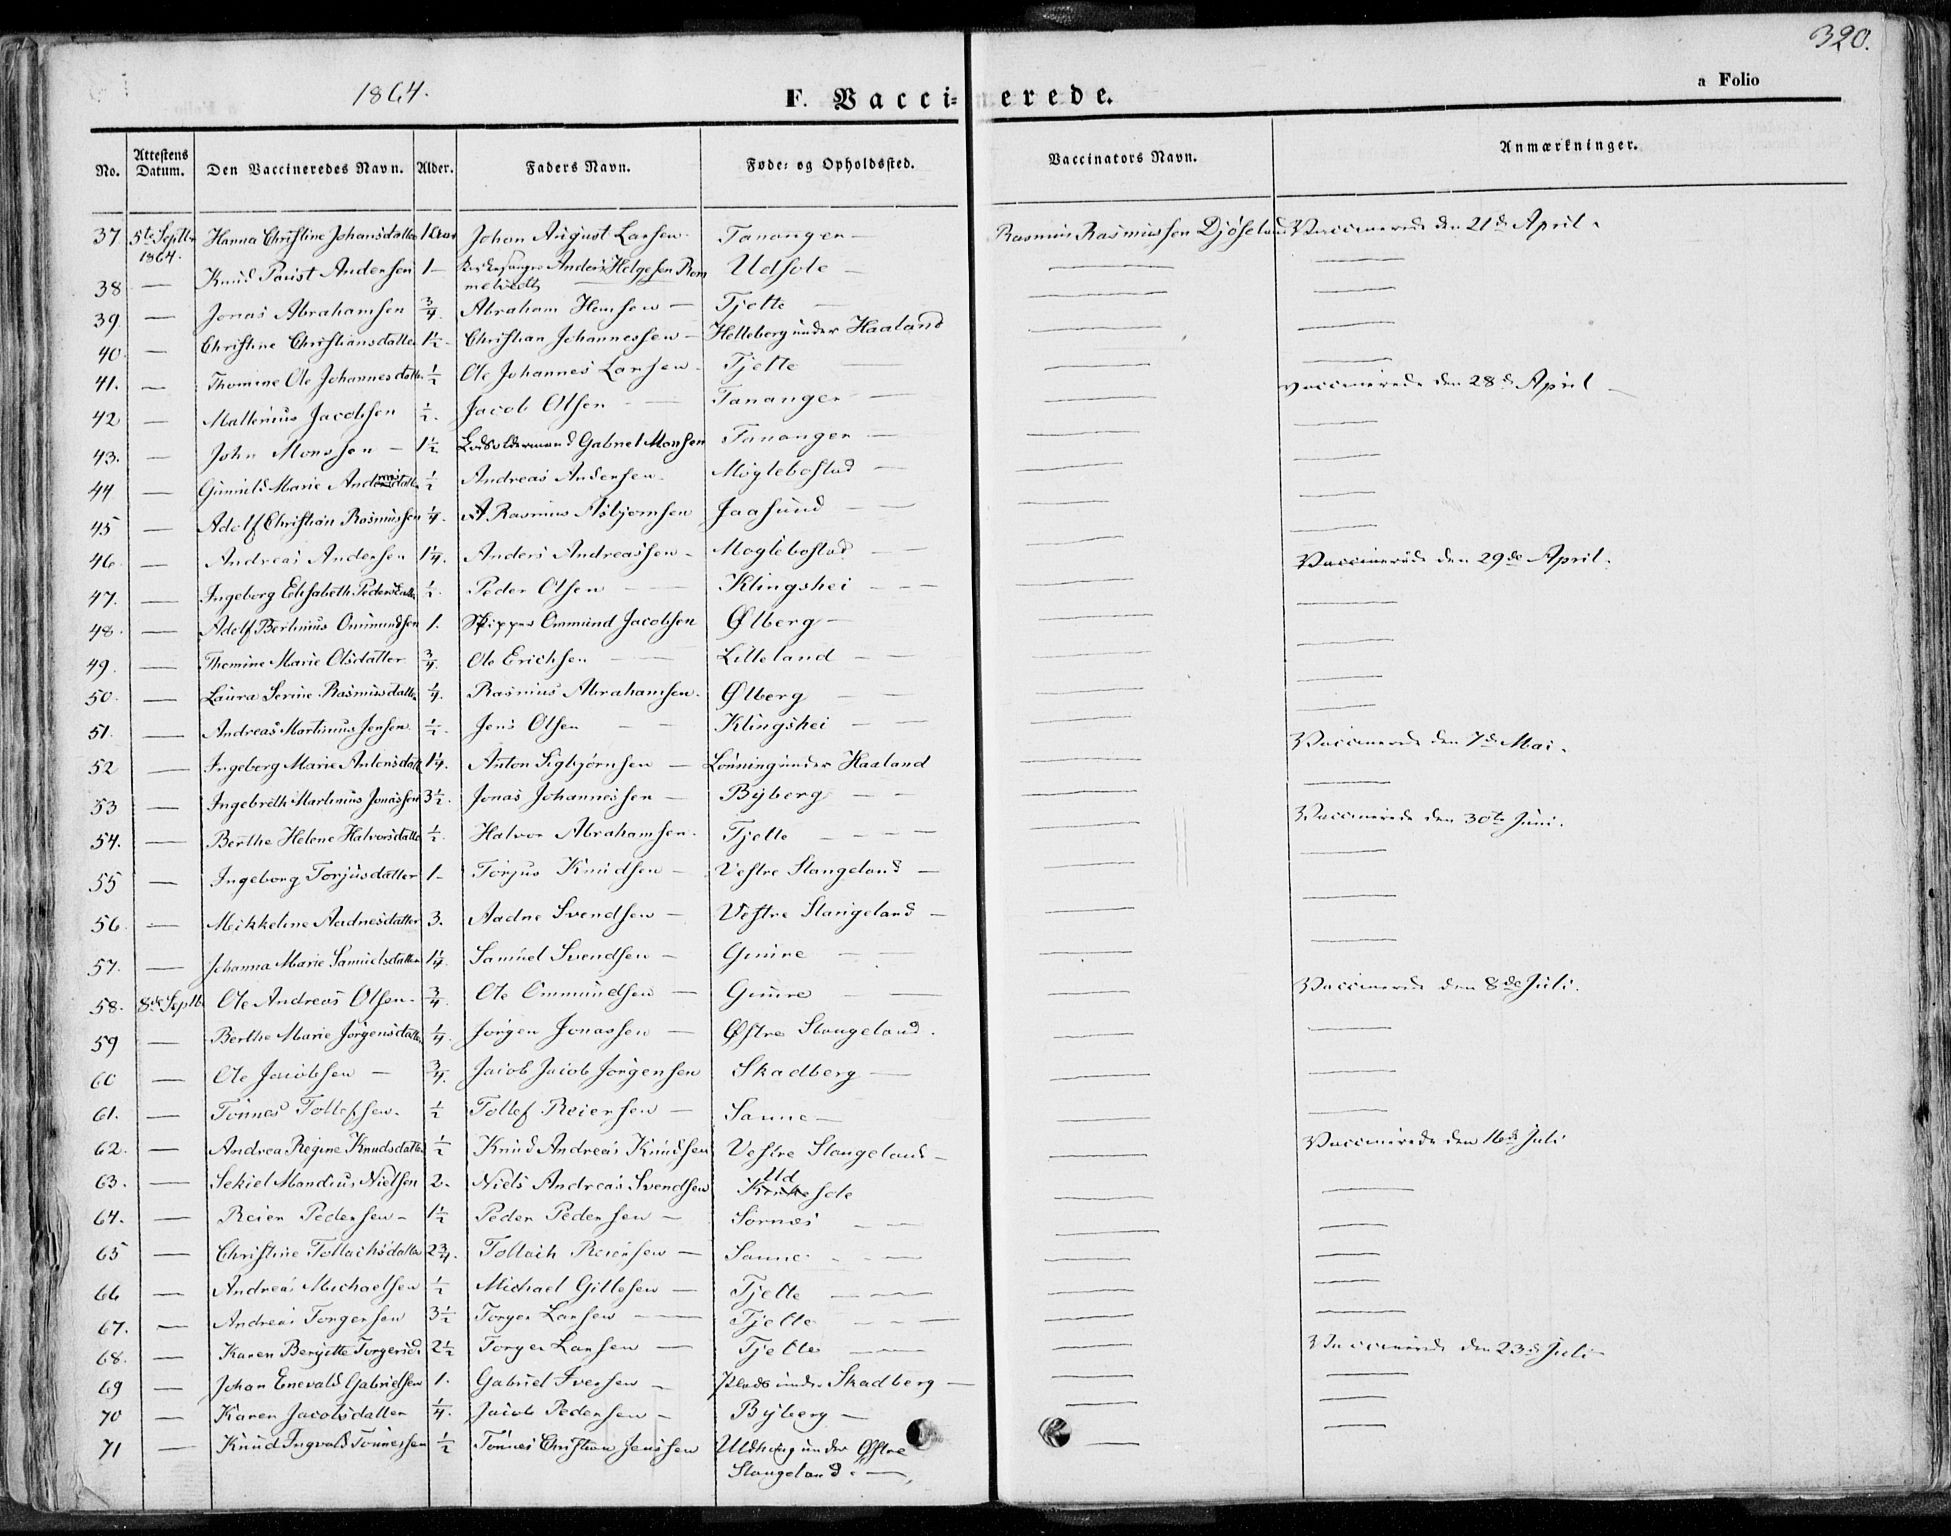 320.
1864.
F. Vaccinerede.
a Folio
No. Attestens Datum. Den Vaccineredes Navn. Alder. Faders Navn. Føde- og Opholdssted. Vaccinators Navn. Anmærkninger.
37 5te Septbr 1864. Hanna Christine Johansdatter 1 Johan August Larsen Tananger Rasmus Rasmussen Vaccinerede den 21de April.
38 — Knud Anderssen 1 Anders Helgesen Udsole — —
39 — Jonas Abrahamsen 3/4 Abraham Hensen Tjelte — —
40. — Christine Christiansdatter 1 1/2 Christian Johannessen Helleberg under Haaland — —
41. — Thomine Ole Johannesdatter 1/2 Ole Johannes Larsen Tjelte — vaccinerede den 28de April
42 — Mallenius Jacobsen 1/2. Jacob Olsen Tananger — —
43. — John Monssen 1 1/2 Lodsoldermand Gabriel Monsen Tananger — —
44 — Gunnild Marie 1/2 Andreas Andersen Myglebostad — —
45 — Adolf Christian Rasmussen 1/4. Rasmus Asbjørnsen Jaasund — —
46 — Andreas Andersen 1 1/4. Anders Andreassen Moglebostad — Vaccinerede den 29de April.
47. — Ingeborg Elisabeth Pedersdatter 1/2. Peder Olsen Klingshei — —
48. — Adolf Berlinius Ommundsen 1. Skipper Ommund Jacobsen Ølberg — —
49. — Thomine Marie Olsdatter 3/4. Ole Erichsen Lilleland — —
50. — Laura Serine Rasmusdatter 1/4. Rasmus Abrahamsen Ølberg — —
51. — Andreas Martinus Jensen 1/2. Jens Olsen Klingshei — Vaccinerede den 7de Mai.
52 — Ingeborg Marie Antonsdatter 1 1/4. Anton Sigbjørnsen Lønning under Haaland — —
53 — Ingebreth Martinius Jonassen 3 1/2. Jonas Johannessen Byberg — Vaccinerede den 30te Juni.
54. — Berthe Helene Halvorsdatter 1/2. Halvor Abrahamsen Tjelte — —
55 — Ingeborg Torjusdatter 1 Torjus Knudsen Vestre Stangeland — —
56 — Mikkeline Aadnesdatter 3. Aadne Svendsen Vestre Stangeland — —
57. — Johanna Marie Samuelsdatter 1 1/4. Samuel Svendsen Gimre — Vaccinerede den 8de Juli.
58. 8de Septb Ole Andreas Olsen 3/4. Ole Ommundsen Gimre — —
59 — Berthe Marie Jørgensdatter 1/4. Jørgen Jonassen Østre Stangeland. — —
60 — Ole Jacobsen 3/4. Jacob Jacob Jørgensen Skadberg — —
61. — Tønnes Tollefsen 1/2 Tollef Reiersen Sanne — Vaccinerede den 16de Juli
62. — Andrea Regine Knudsdatter 1/2 Knud Andreas Knudsen Vestre Stangeland — —
63. — Sekiel Mandius Nielsen 2. Niels Andreas Svendsen Udsole — —
64. — Reier Pedersen 1 1/2 Peder Pedersen Sørnæs — —
65 — Christine Tollachsdatter 2 3/4. Tollach Reiersen Sanne — —
66 — Andreas Michaelsen 1/2 Michael Gillesen Tjelte — —
67. — Andreas Torgersen 3 1/2 Torger Larsen Tjelte — Vaccinerede den 23de Juli
68. — Karen Bergitte Torgersd 2 1/2 Torger Larsen Tjelte — —
69 — Johan Enevald Gabrielsen 1. Gabriel Iversen Plads under Skadberg — —
70 — Karen Jacobsdatter 1/4. Jacob Pedersen Byberg — —
71 — Knud Ingvald Tønnessen 1/2 Tønnes Christian Jenssen under Østre Stangeland. —